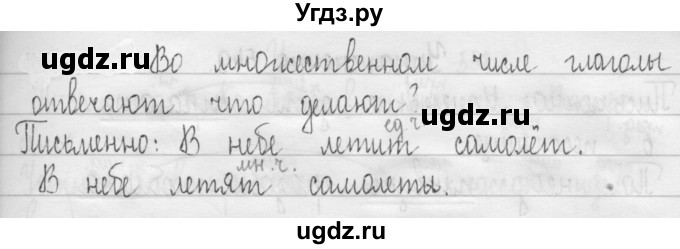 Угдз.ру
ugdz.ru
Во множественном числе глаголы
отвечают что делают?
ugdz.ru
ед.ч
Письменно: В небе летит самолёт.
мн.ч.
В небе летят самолеты.
ugdz.ru
ugdz.ru